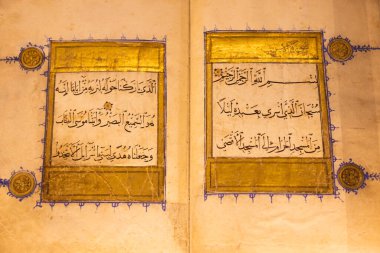 بسم الله الرحمن الرحيم
سبحان الذي اسرى بعبده ليلا
من المسجد الحرام الى المسجد الاقصى
الذي بركنا حوله لنريه من اياتنا انه
هو السميع البصير واتينا موسى الكتب
وجعلناه هدى لبني اسرائيل الا تتخذوا